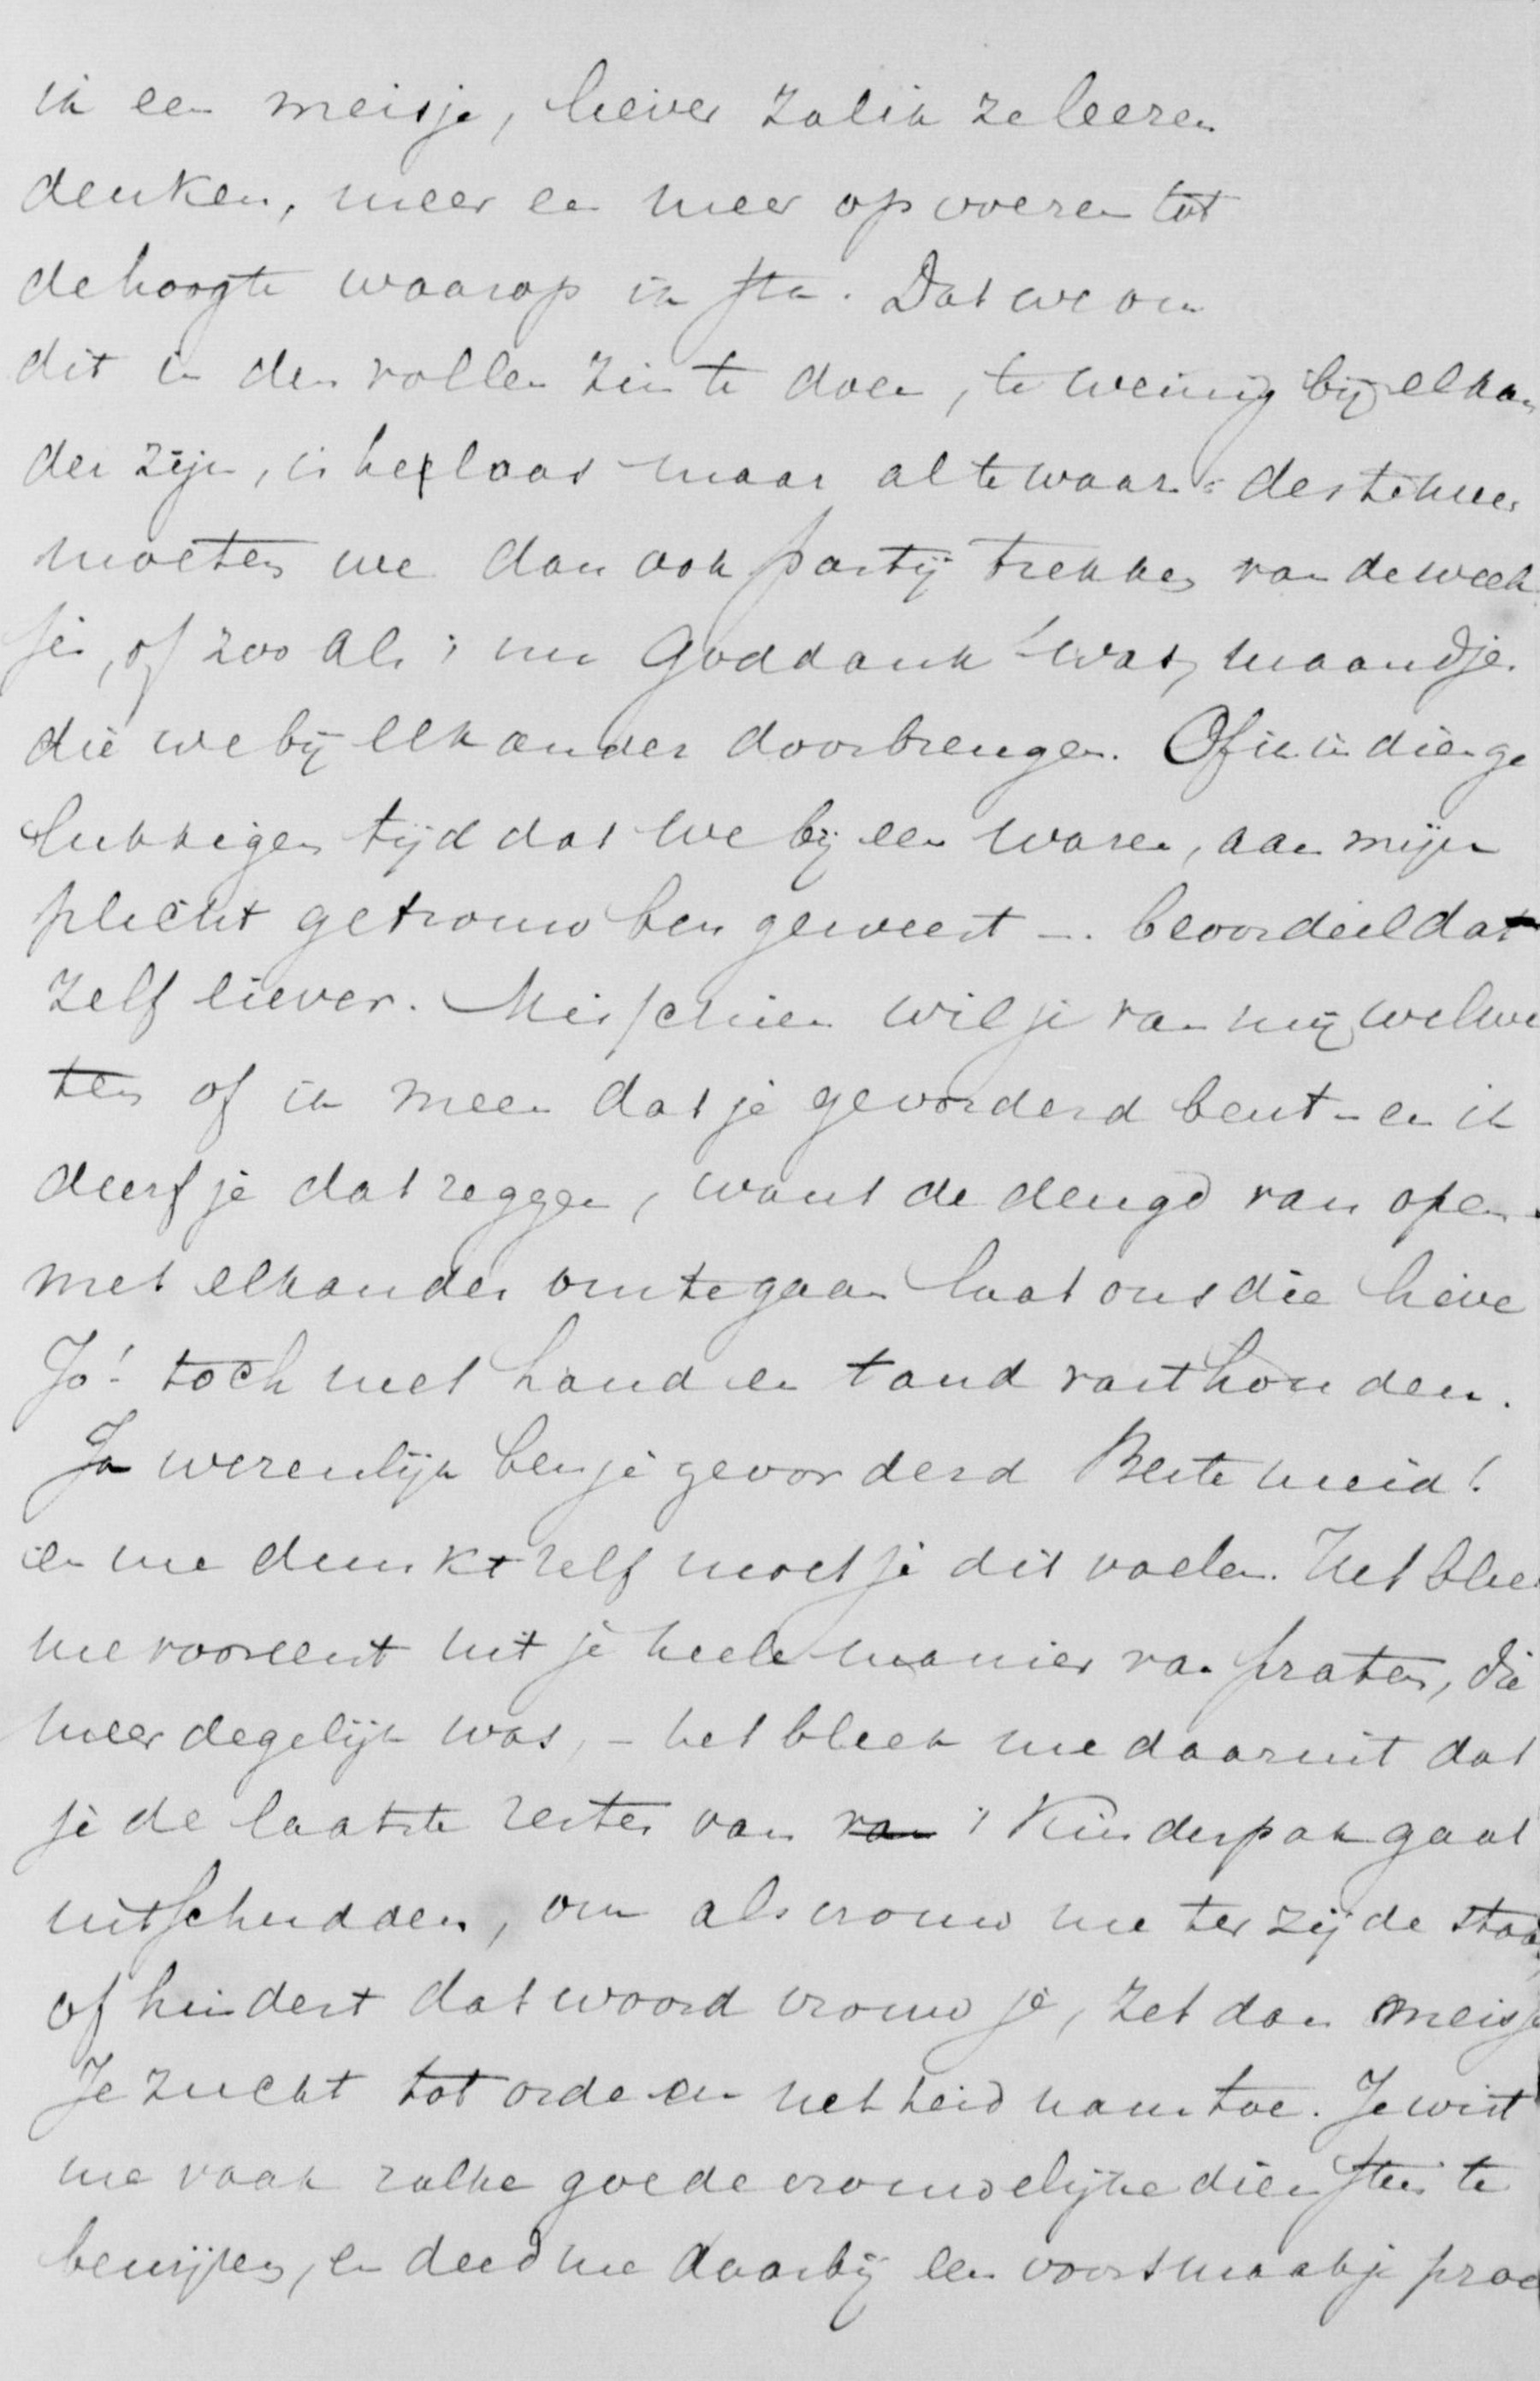 ik een meisje, liever zal ik ze leeren
denken, meer en meer opvoeren tot
de hoogte waarop ik sta. Dat we om
dit in den vollen zin te doen, te weinig bij elkan
der zijn, is helaas maar al te waar: des te meer
moeten we dan ook partij trekken van de week
jes, of zooals 't nu Goddank! was, maandje.
die we bij elkander doorbrengen. Of ik in dien ge
lukkigen tijd dat we bijeen waren, aan mijn
plicht getrouw ben geweest —. beoordeel dat
zelf liever. Misschien wil je van mij wel we
ten of ik meen dat je gevorderd bent – en ik
durf je dat zeggen, want de deugd van open
met elkander om te gaan laat ons die lieve
Jo! toch met hand en tand vasthouden.
Ja werenlijk ben je gevorderd Beste meid!
en me dunkt zelf moet je dit voelen. Het blee
me vooreerst uit je heele manier van praten, die
meer degelijk was, – het bleek me daaruit dat
je de laatste resten van van 't Kinderpak gaat
uitschudden, om als vrouw me ter zijde staa
of hindert dat woord vrouw je, zet dan meisje
Je zucht tot orde en netheid nam toe. Je wist
me vaak zulke goede vrouwelijke diensten te
bewijzen, en deed me daarbij een voorsmaakje proe